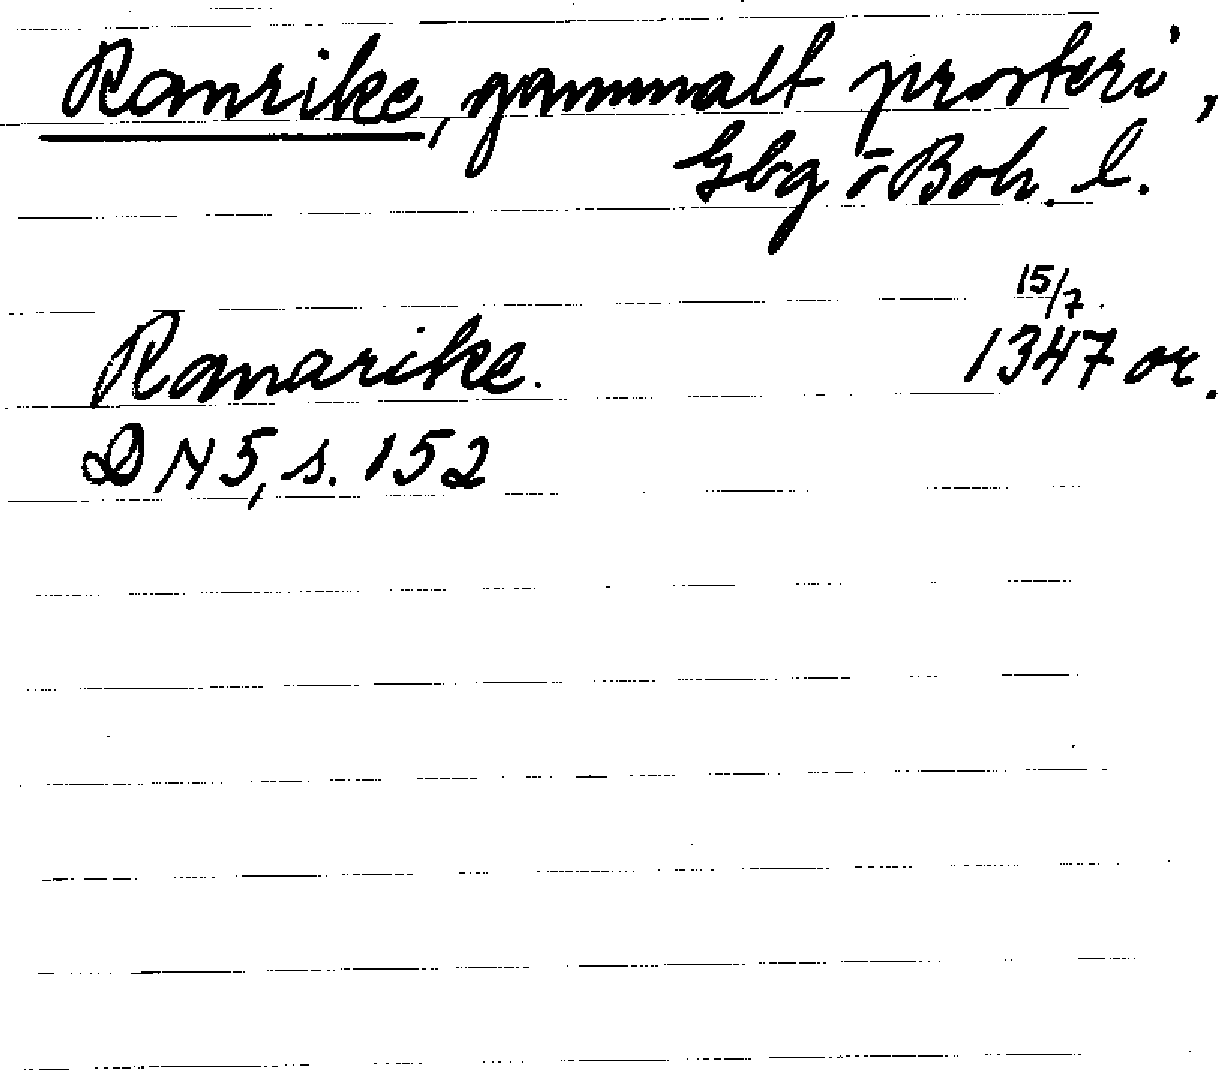 Ranrike, gammalt prosteri,
Gbg o Boh. l.
15/7.
Ranarike. 1347 or.
DN 5, s. 152